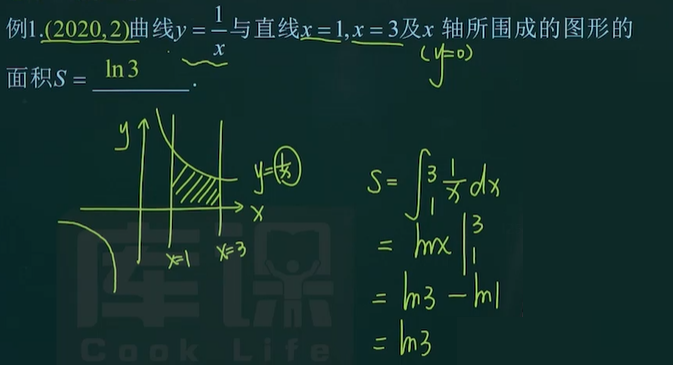 例1.(2020,2)曲线y = 1/x 与直线x = 1, x = 3及x 轴所围成的图形的
(y=0)
面积S = ln 3 .
y
y=1/x
x
x=1
x=3
S = ∫₁³ 1/x dx
= lnx |₁³
= ln3 - ln1
= ln3
库课
Cook Life